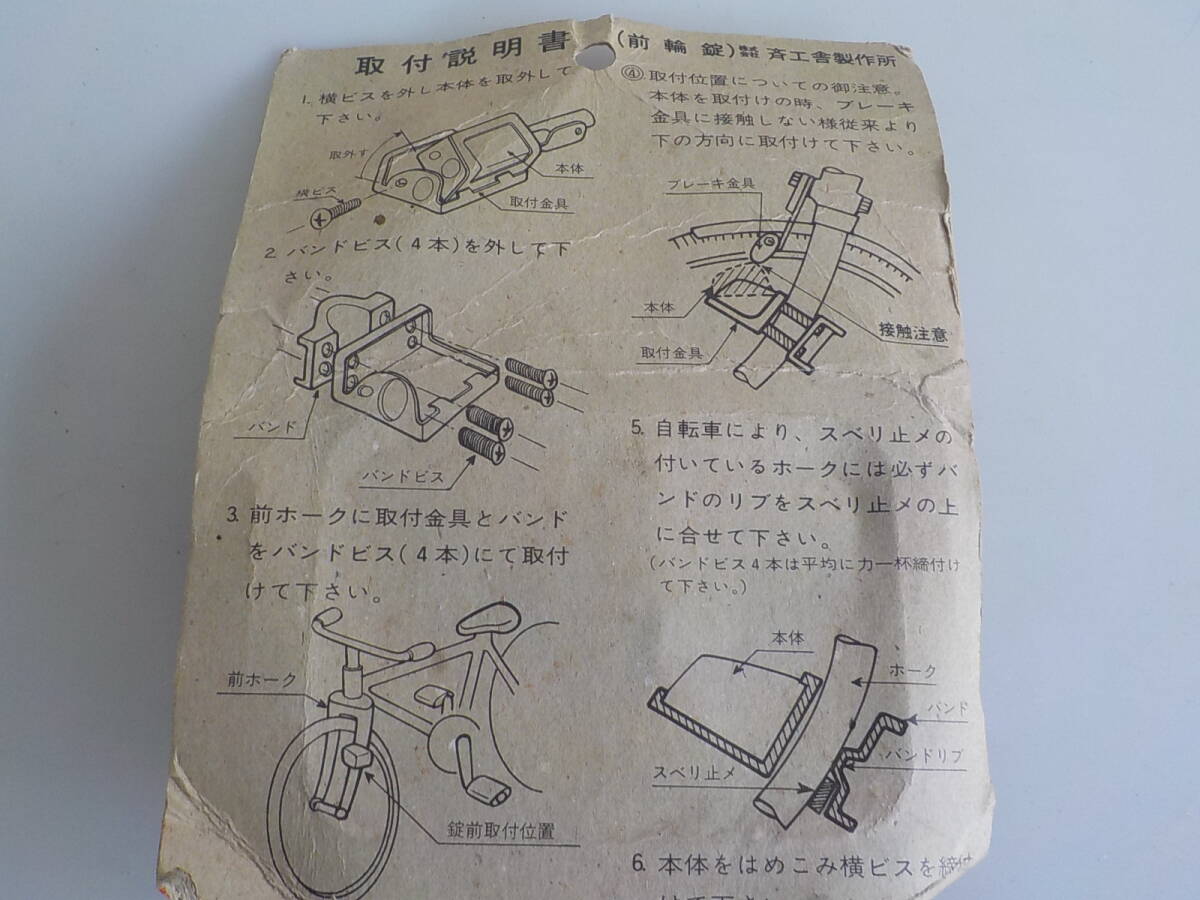 取付説明書 (前輪錠) 株式会社 斉工舎製作所
1. 横ビスを外し本体を取外して
下さい。
取外す
横ビス
本体
取付金具
2. バンドビス(4本)を外して下
さい。
バンド
バンドビス
3. 前ホークに取付金具とバンド
をバンドビス(4本)にて取付
けて下さい。
前ホーク
錠前取付位置
④ 取付位置についての御注意。
本体を取付けの時、ブレーキ
金具に接触しない様従来より
下の方向に取付けて下さい。
ブレーキ金具
本体
取付金具
接触注意
5. 自転車により、スベリ止メの
付いているホークには必ずバ
ンドのリブをスベリ止メの上
に合せて下さい。
(バンドビス4本は平均に力一杯締付け
て下さい。)
本体
ホーク
バンド
バンドリブ
スベリ止メ
6. 本体をはめこみ横ビスを締付
けて下さい